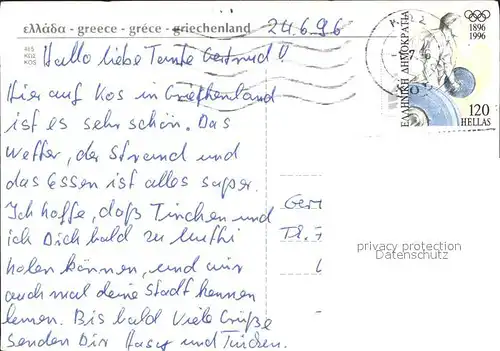 ελλάδα - greece - gréce - griechenland
24.6.96
KOS
Hallo liebe Tante Gertrud!!
Hier auf Kos in Griechenland
ist es sehr schön. Das
Wetter, der Strand und
das Essen ist alles super.
Ich hoffe, daß Tinchen und
ich Dich bald zu Muffi
holen können, und wir
auch mal deine Stadt kennen
lernen. Bis bald Viele Grüße
senden Dir und Tinchen.
ΕΛΛΗΝΙΚΗ ΔΗΜΟΚΡΑΤΙΑ
1896
1996
120
HELLAS
Gert
privacy protection
Datenschutz